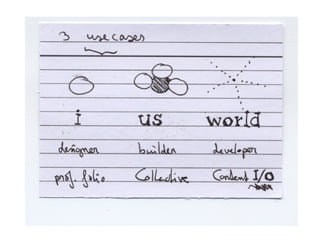 3 use cases
i us world
designer builder developer
prof. folio Collective Content I/O